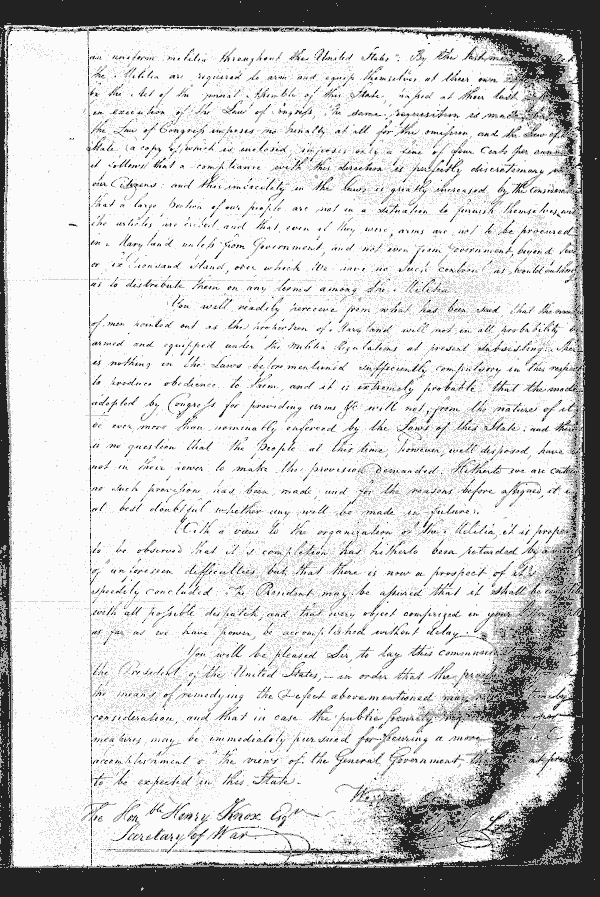 an uniform militia throughout the United States". By this last
the Militia are required to arm and equip themselves at their own
by the Act of the General Assembly of this State, passed at their last
in execution of the Law of Congress, the same requisition is made, but
the Law of Congress imposes no penalty at all for this omission, and the Law of
State (a copy of which is enclosed) imposes only a fine of four Cents per annum
it follows that a compliance with this direction is perfectly discretionary
our Citizens: and this imbecility in the laws is greatly increased by the
that a large Portion of our people are not in a situation to furnish themselves with
the articles directed and that even if they were, arms are not to be procured
in Maryland unless from Government, and not even from Government, beyond
or six thousand Stand, over which we have no such controul as would
us to distribute them on any terms among the Militia.
You will readily perceive from what has been said that the
of men pointed out as the proportion of Maryland will not in all probability be
armed and equipped under the Militia Regulations at present subsisting. There
is nothing in the Laws beforementioned sufficiently compulsory in this respect
to produce obedience to them, and it is extremely probable that the mode
adopted by Congress for providing arms &c will not, from the nature of it
be ever more than nominally enforced by the Laws of this State: and there
is no question that the People at this time, however well disposed, have
not in their power to make the provision demanded. Hitherto we are
no such provision has been made, and for the reasons before assigned, it is
at best doubtful whether any will be made in future.
With a view to the organization of the Militia, it is proper
to be observed that it's completion has hitherto been retarded by a
of unforeseen difficulties, but that there is now a prospect of it's
speedily concluded. The President may be assured that it shall be
with all possible dispatch, and that every object comprized in your
as far as we have power, be accomplished without delay.
You will be pleased Sir, to lay this
the President of the United States, in order that the
the means of remedying the Defect abovementioned may
consideration, and that in case the public Security may
measures may be immediately pursued for securing a more
accomplishment of the views of the General Government, than
to be expected in this State.
The Honble Henry Knox Esqr
Secretary of War